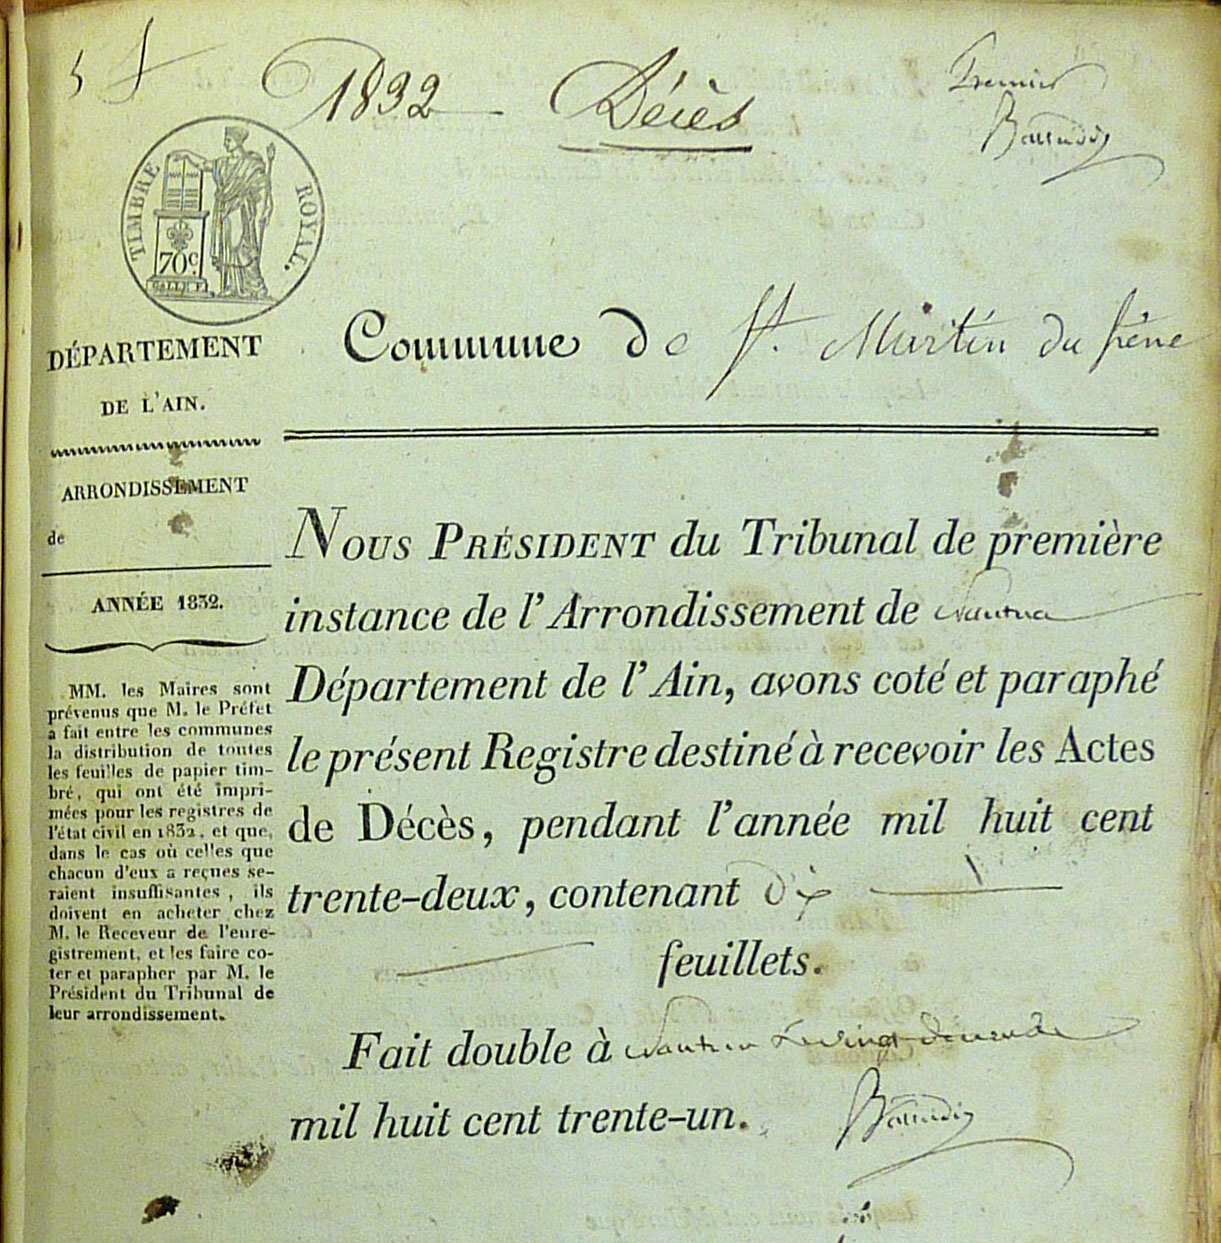 1832 Décès
Premier
TIMBRE ROYAL.
70c.
DÉPARTEMENT
DE L'AIN.
ARRONDISSEMENT
de
ANNÉE 1832.
MM. les Maires sont
prévenus que M. le Préfet
a fait entre les communes
la distribution de toutes
les feuilles de papier tim-
bré, qui ont été impri-
mées pour les registres de
l'état civil en 1832, et que,
dans le cas où celles que
chacun d'eux a reçues se-
raient insuffisantes, ils
doivent en acheter chez
M. le Receveur de l'enre-
gistrement, et les faire co-
ter et parapher par M. le
Président du Tribunal de
leur arrondissement.
Commune de St. Martin du frêne
NOUS PRÉSIDENT du Tribunal de première
instance de l'Arrondissement de Nantua
Département de l'Ain, avons coté et paraphé
le présent Registre destiné à recevoir les Actes
de Décès, pendant l'année mil huit cent
trente-deux, contenant dix
feuillets.
Fait double à Nantua le vingt décembre
mil huit cent trente-un.